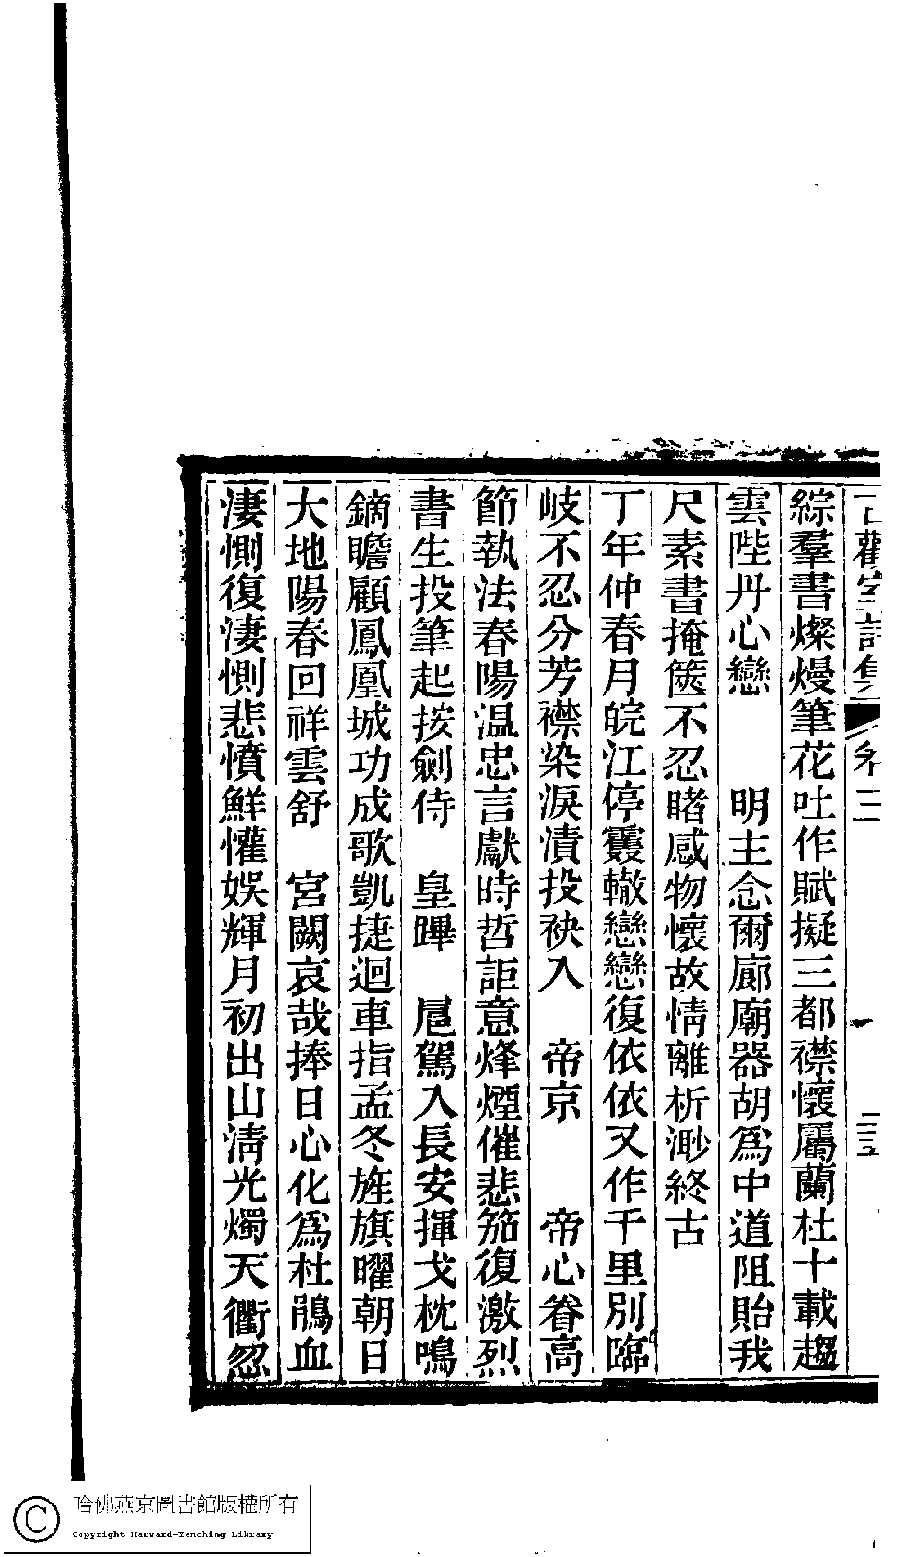 古歡室詩集 卷二 三五
綜羣書燦熳筆花吐作賦擬三都襟懷屬蘭杜十載趨
雲陛丹心戀 明主念爾廊廟器胡爲中道阻貽我
尺素書掩篋不忍睹感物懷故情離析渺終古
丁年仲春月皖江停轍戀戀復依依又作千里別臨
岐不忍分芳襟染淚漬投袂入 帝京 帝心眷高
節執法春陽温忠言獻時哲詎意烽煙催悲笳復激烈
書生投筆起按劍侍 皇蹕 扈駕入長安揮戈枕鳴
鏑瞻顧鳳凰城功成歌凱捷迴車指孟冬旌旗曜朝日
大地陽春回祥雲舒 宮闕哀哉捧日心化爲杜鵑血
淒惻復淒惻悲憤鮮懽娛輝月初出山淸光燭天衢忽
哈佛燕京圖書館版權所有
Copyright Harvard-Yenching Library